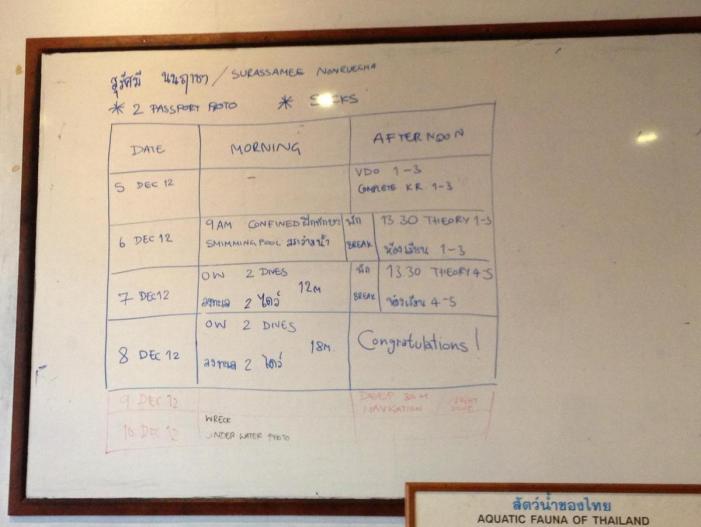 สุรัศมี นนฤาชา / SURASSAMEE NONRUECHA
* 2 PASSPORT FOTO * S CKS
DATE MORNING AFTERNOON
5 DEC 12 - VDO 1-3
COMPLETE K.R. 1-3
6 DEC 12 9 AM CONFINED ฝึกทักษะ พัก 13 30 THEORY 1-3
SMIMMING POOL สระว่ายน้ำ BREAK ห้องเรียน 1-3
7 DEC 12 OW 2 DIVES 12M พัก 13.30 THEORY 4-5
ลงทะเล 2 ไดว์ BREAK ห้องเรียน 4-5
8 DEC 12 OW 2 DIVES 18M. Congratulations!
ลงทะเล 2 ไดว์
9 DEC 12 DEEP 30 M NIGHT
NAVIGATION DIVE
10 DEC 12 WRECK
UNDER WATER PHOTO
สัตว์น้ำของไทย
AQUATIC FAUNA OF THAILAND